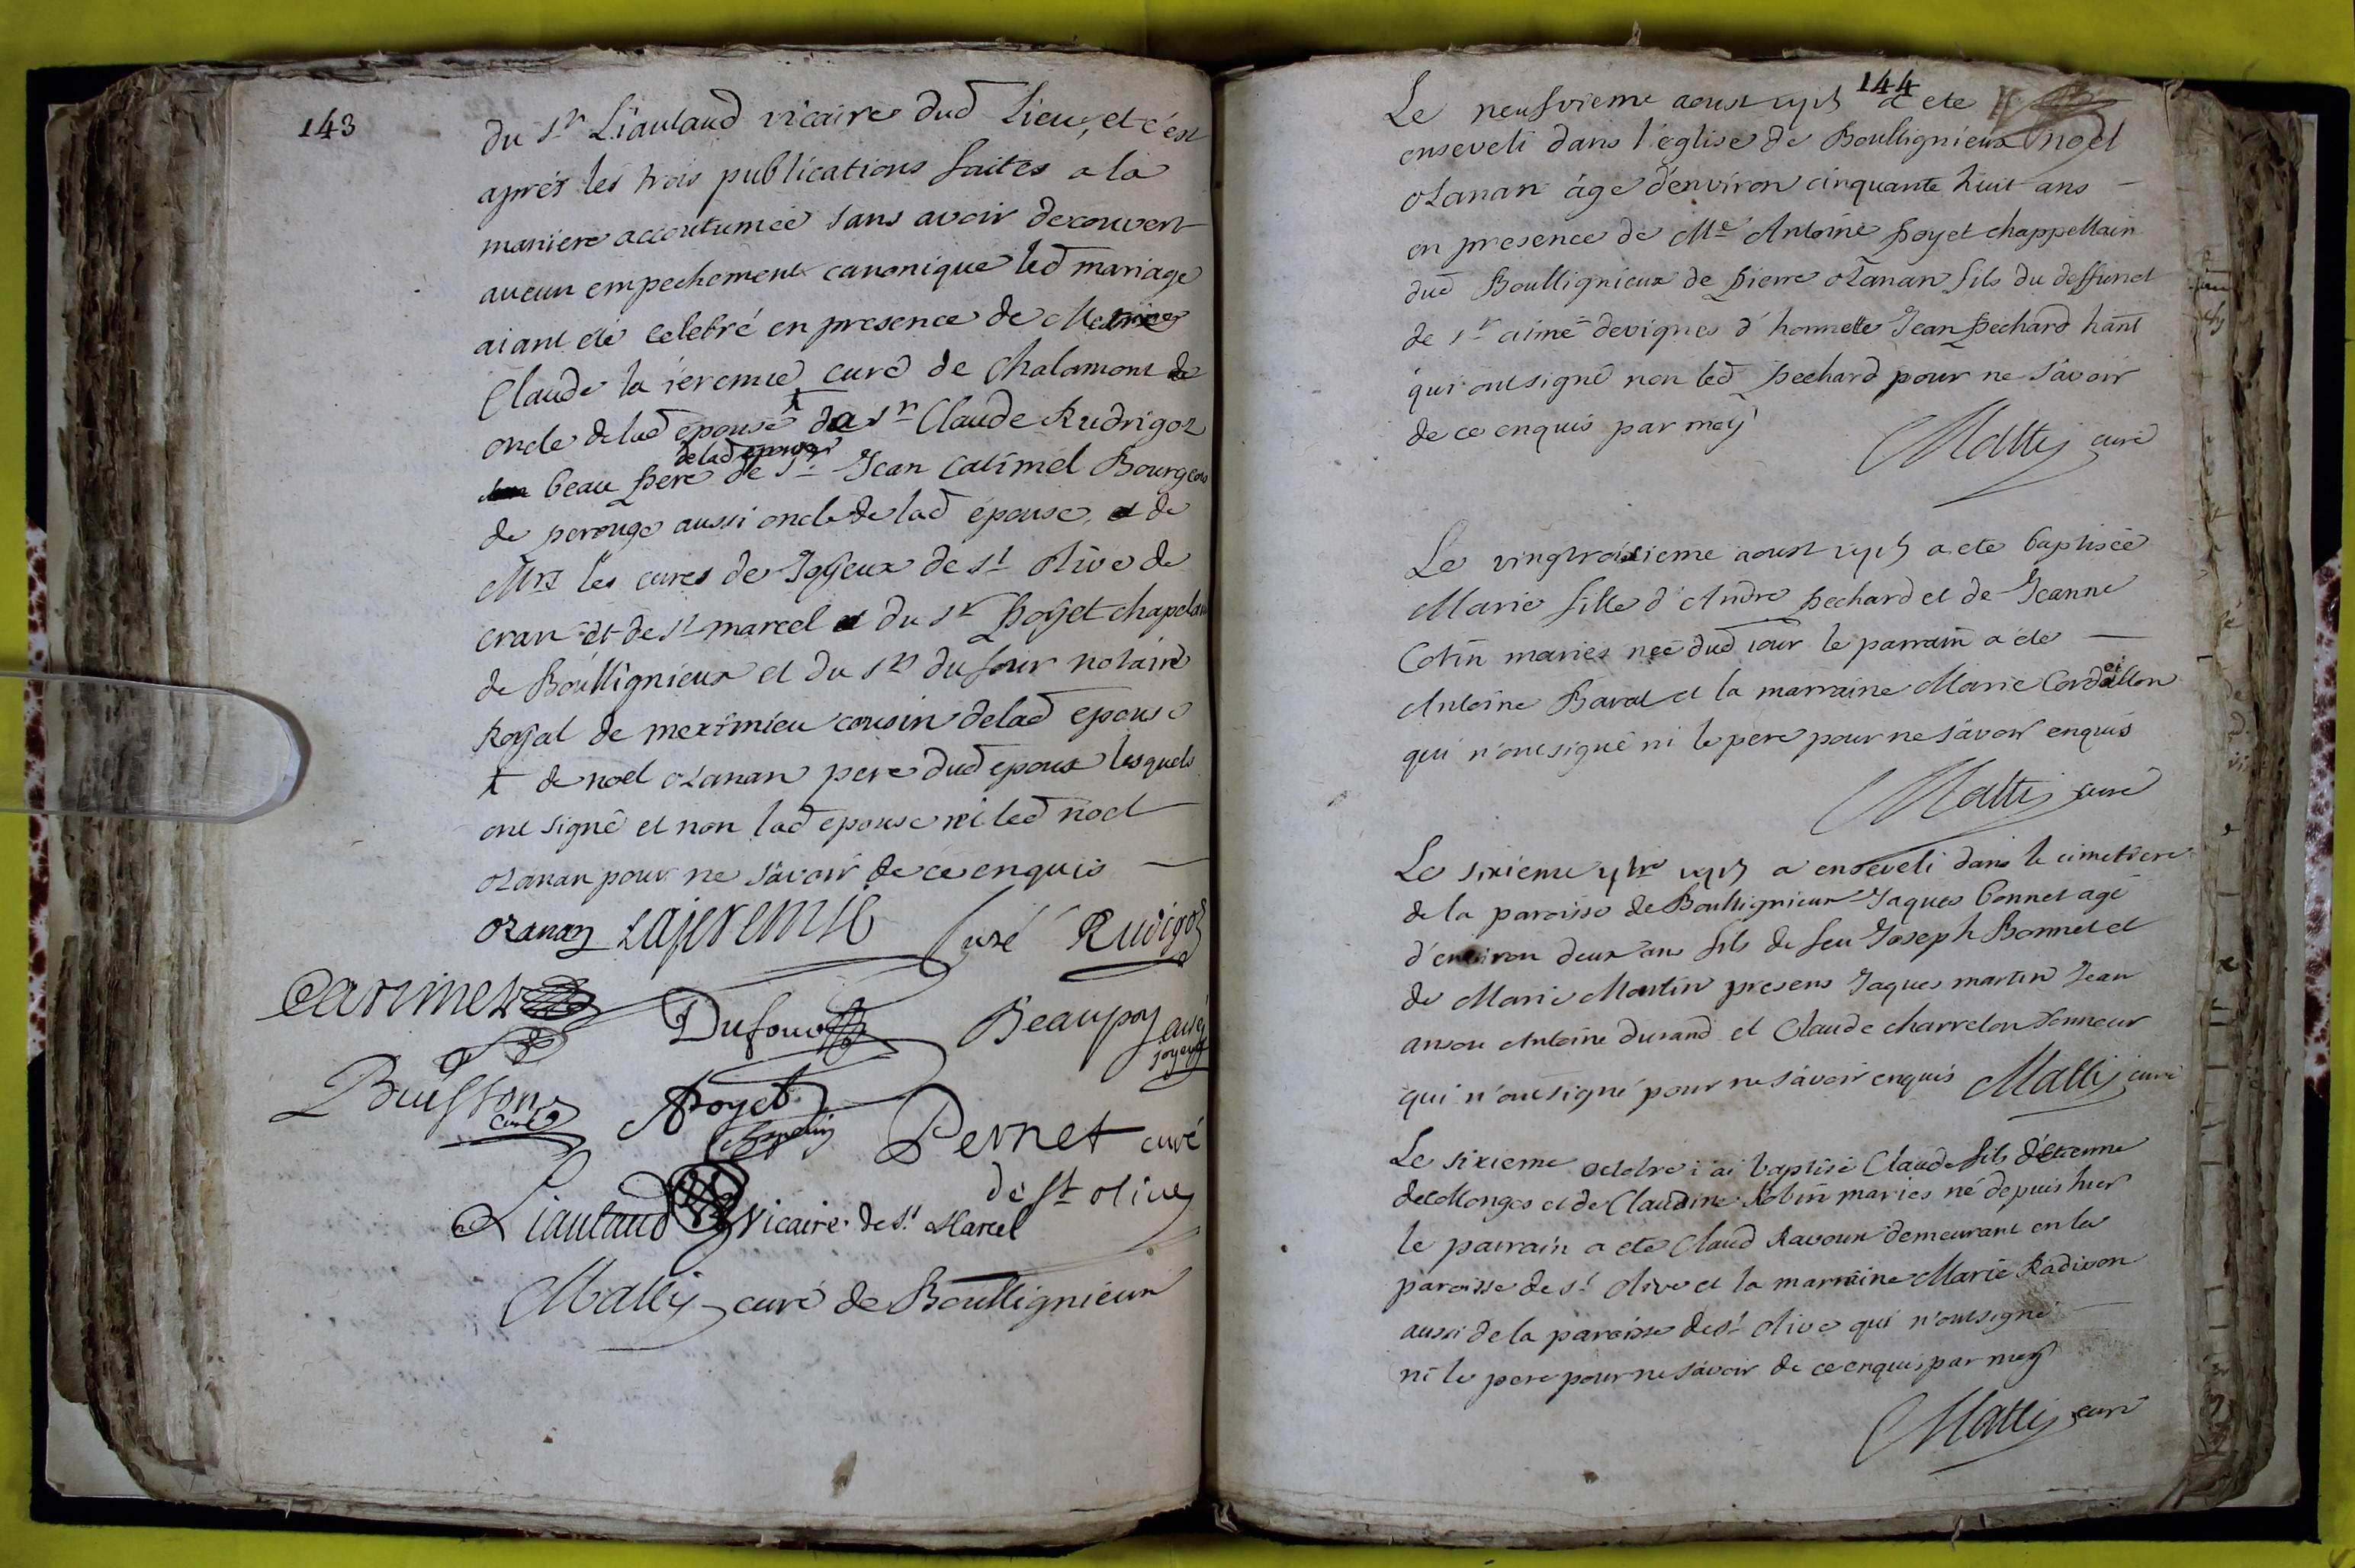 143
du Sr Liautaud vicaire dud lieu, et c'est
aprés les trois publications faites a la
maniere accoutumée sans avoir decouvert
aucun empechement canonique led mariage
aiant été celebré en presence de
Claude la jeremie curé de Chalamont
oncle de lad épouse Sr Claude Rudrigoz
beau pere de lad epouse de Sr Jean Catimel Bourgeois
de perouge aussi oncle de lad épouse, et de
Mrs les cures de Joÿeux de St Olive de
cran et de St marcel et du Sr Poÿet chapelain
de Boullignieux et du Sr dufour notaire
Roÿal de meximieu cousin de lad epouse
de noel ozanan pere dud epoux lesquels
ont signé et non lad epouse ni led noel
ozanan pour ne sávoir de ce enquis
ozanan Lajeremie Curé Rudigoz
Catimel Dufour Beaupoy curé joyeux
Buisson curé Poyet Chapelain Pernet curé
de St olive
Liautaud vicaire de St Marcel
Mattij curé de Boullignieux
144
Le neufvieme aoust a ete
enseveli dans l'église de Boullignieux noel
ozanan âgé d'environ cinquante huit ans
en presence de Me Antoine Poyet chappellain
dud Boullignieux de Pierre ozanan fils du deffunct
de Sr aimé devignes d'honnette Jean Pechard hant
qui ont signé non led Pechard pour ne sávoir
de ce enquis par moÿ
Mattij curé
Le vingtroisieme aoust a ete baptisée
Marie fille d'Andre Pechard et de Jeanne
Cotin mariés née dud jour le parrain a éte
Antoine Barat et la marraine Marie
qui n'ont signé ni le pere pour ne sávoir enquis
Mattij curé
Le sixieme 7bre a enseveli dans le cimetiere
de la paroisse de Boullignieux Jaques bonnet agé
d'environ deux ans fils de feu Joseph Bonnet et
de Marie Martin presens Jaques martin Jean
Antoine Durand et Claude charreton sonneur
qui n'ont signé pour ne sávoir enquis Mattij curé
Le sixieme octobre j'ai baptisé Claude fils d'Etienne
deCollonges et de Claudine Robin mariés né depuis hier
le parrain a eté Claud Ravoux demeurant en la
paroisse de St Olive et la marraine Marie Radison
aussi de la paroisse de St Olive qui n'ont signé
ni le pere pour ne sávoir de ce enquis par moÿ
Mattij curé